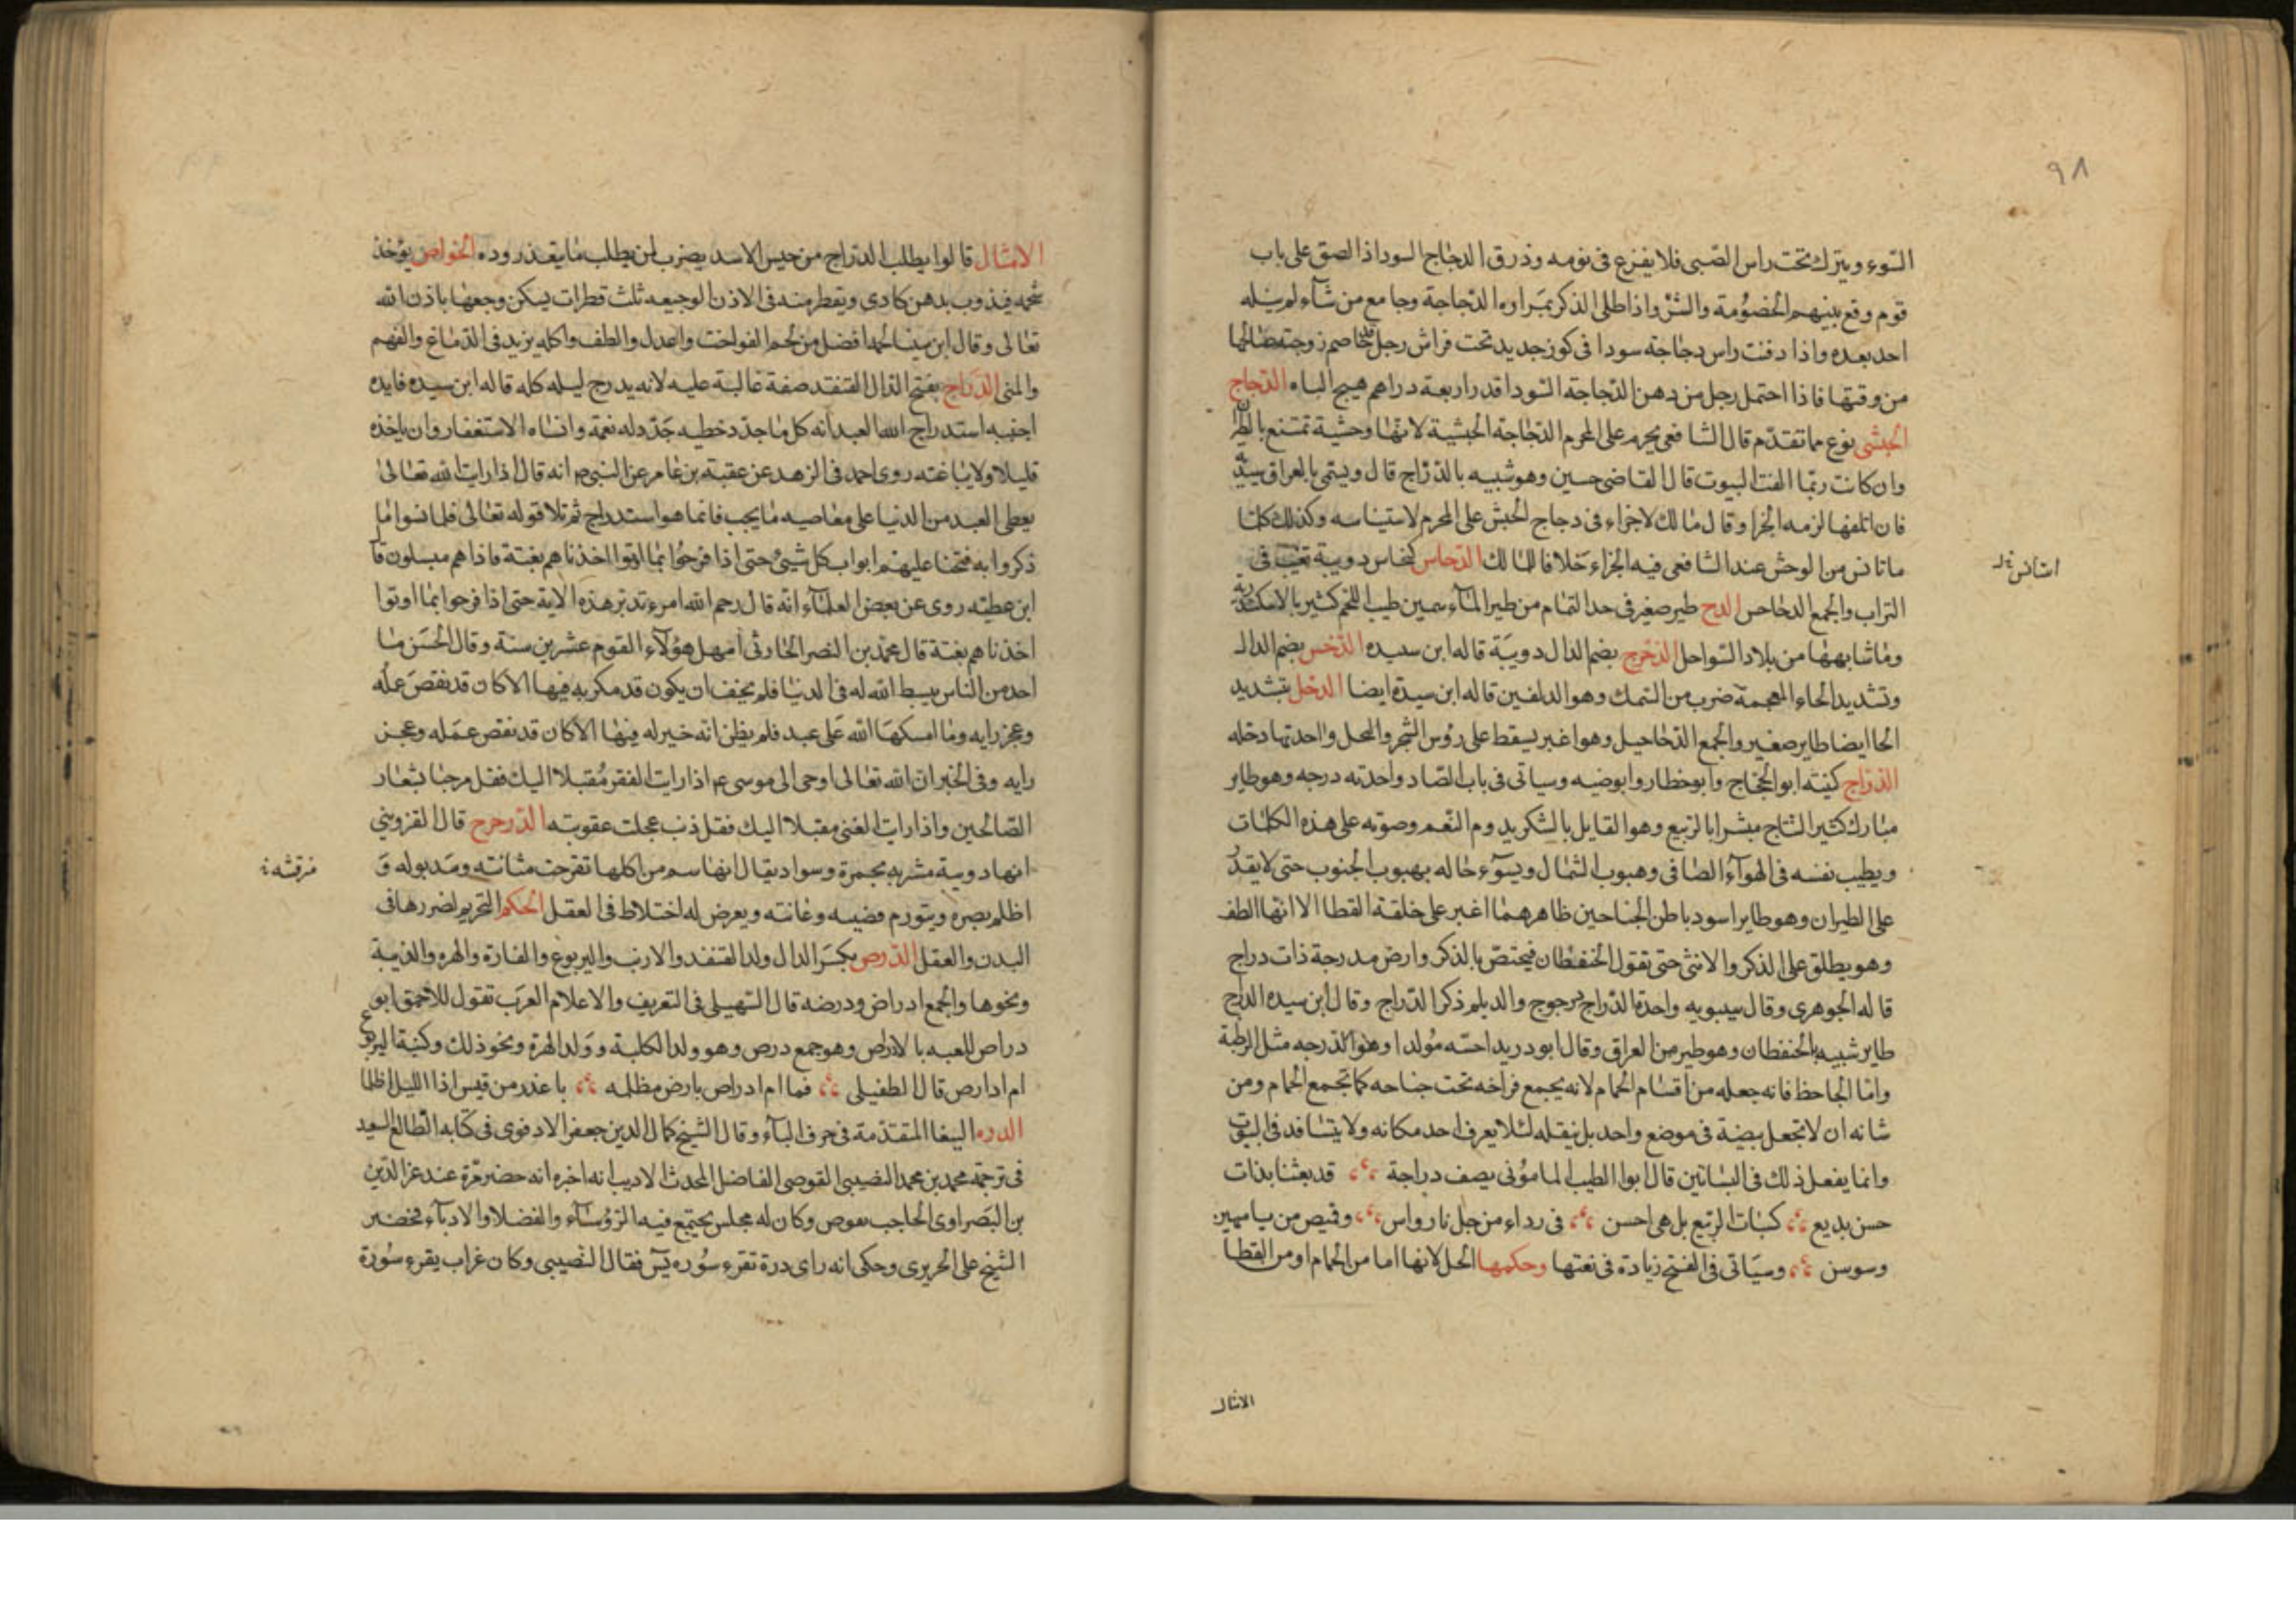 ٩٨
السوء ويترك تحت راس الصبي فلا يفزع في نومه وذرق الدجاج السود اذا الصق على باب
قوم وقع بينهم الخصومة والشر واذا طلى الذكر بمراره الدجاجة وجامع من شآء لم ينله
احد بعده واذا دفنت راس دجاجه سودا في كوز جديد تحت فراش رجل خاصم زوجته صالحها
من وقتها فاذا احتمل رجل من دهن الدجاجة السودا قدر اربعة دراهم هيج الباه الدجاج
الحبشي نوع مما تقدم قال الشافعي يحرم على المحرم الدجاجة الحبشية لانها وحشية تمتنع بالطيران
وان كانت ربما الفت البيوت قال القاضي حسين وهو شبيه بالدراج قال ويسمى بالعراق سندية
فان اتلفها لزمه الجزا وقال مالك لا جزاء في دجاج الحبش على المحرم لاستيناسه وكذلك كلما
ماتانس من الوحش عند الشافعي فيه الجزاء خلافا لمالك الدحاس كنحاس دويبة تغيب في
استانس
التراب والجمع الدحاحس الدح طير صغير في حد اليمام من طير المآء سمين طيب اللحم كثير بالاسكندرية
وما شابهها من بلاد السواحل الدخرج بضم الدال دويبة قاله ابن سيده الدخس بضم الدال
وتشديد الخاء المعجمة ضرب من السمك وهو الدلفين قاله ابن سيدة ايضا الدخل بتشديد
الخا ايضا طاير صغير والجمع الدخاخيل وهو اغبر يسقط على رؤس الشجر والنحل واحدتها دخله
الدراج كنيته ابو الحجاج وابو خطار وابو ضبه وسياتي في باب الضاد واحدته درجه وهو طاير
مبارك كثير النتاج مبشر بالربيع وهو القايل بالشكر يدوم النعم وصوته على هذه الكلمات
ويطيب نفسه في الهوآء الصافي وهبوب الشمال ويسوء حاله بهبوب الجنوب حتى لا يقدر
على الطيران وهو طاير اسود باطن الجناحين ظاهرهما اغبر على خلقة القطا الا انها الطف
وهو يطلق على الذكر والانثى حتى تقول الحنقطان فيختص بالذكر وارض مدرجة ذات دراج
قاله الجوهري وقال سيبويه واحدة الدراج درجوج والديلم ذكر الدراج وقال ابن سيده الدراج
طاير شبيه بالحنقطان وهو طير من العراق وقال ابو دريد احسبه مولدا وهو الدرجه مثل الرطبة
واما الجاحظ فانه جعله من اقسام الحمام لانه يجمع فراخه تحت جناحه كما تجمع الحمام ومن
شانه ان لا تجعل بيضة في موضع واحد بل ينقله لئلا يعرف احد مكانه ولا يتسافد في البيوت
وانما يفعل ذلك في البساتين قال ابو الطيب المامؤني يصف دراجة قد بعثنا بذات
حسن بديع كنبات الربيع بل هي احسن في رداء من جلنار واس وقميص من ياسمين
وسوسن وسياتي في القبج زيادة في نعتها وحكمها الحل لانها اما من الحمام او من القطا
الامثال
الامثال قالوا يطلب الدراج من خيس الاسد يضرب لمن يطلب ما يتعذر وروده الخواص يؤخذ
شحمه فيذوب بدهن كادي ويقطر منه في الاذن الوجيعه ثلث قطرات يسكن وجعها باذن الله
تعالى وقال ابن سينا لحمه افضل من لحم الفواخت واعدل والطف واكله يزيد في الدماغ والفهم
والمني الدراج بفتح الدال القنفذ صفة غالبة عليه لانه يدرج ليله كله قاله ابن سيده فايده
اجنبيه استدراج الله العبد انه كل ما جدد خطيه جدد له نعمة وانساه الاستغفار وان ياخذه
قليلا ولا يباغته روى احمد في الزهد عن عقبة بن عامر عن النبي م انه قال اذا رايت الله تعالى
يعطي العبد من الدنيا على معاصيه ما يحب فانما هو استدراج ثم تلا قوله تعالى فلما نسوا ما
ذكروا به فتحنا عليهم ابواب كل شيئ حتى اذا فرحوا بما اوتوا اخذناهم بغتة فاذا هم مبلسون قآ
ابن عطيه روى عن بعض العلمآء انه قال رحم الله امرء تدبر هذه الاية حتى اذا فرحوا بما اوتوا
اخذناهم بغتة قال محمد بن النضر الحارثي امهل هؤلآء القوم عشرين سنة وقال الحسن ما
احد من الناس يبسط الله له في الدنيا فلم يخف ان يكون قد مكر به فيها الا كان قد نقص عمله
وعجز رايه وما امسكها الله على عبد فلم يظن انه خير له فيها الا كان قد نقص عمله وعجز
رايه وفي الخبر ان الله تعالى اوحى الى موسى ع م اذا رايت الفقر مقبلا اليك فقل مرحبا بشعار
الصالحين واذا رايت الغنى مقبلا اليك فقل ذنب عجلت عقوبته الدرحرح قال القزويني
انها دويبة مشربه بحمرة وسواد يقال انها سم من اكلها تقرحت مثانته وسد بوله و
اظلم بصره ويتورم قضيبه وعانته ويعرض له اختلاط في العقل الحكم التحريم لضررها في
البدن والعقل الدرص بكسر الدال ولد القنفذ والارنب واليربوع والفارة والهره والذيبة
ونحوها والجمع ادراص ودرصه قال السهيلي في التعريف والاعلام العرب تقول للاحمق ابو
دراص للعبه بالادراص وهو جمع درص وهو ولد الكلبة وولد الهرة ونحو ذلك وكنية اليربوع
ام ادارص قال الطفيلي فما ام ادراص بارض مظلمه باغدر من قيس اذا الليل اظلما
الدره الببغا المتقدمة في حرف البآء وقال الشيخ كمال الدين جعفر الادفوي في كتابه الطالع السعيد
في ترجمة محمد بن محمد النصيبي القوصي الفاضل المحدث الاديب انه اخبره انه حضر مرة عند عز الدين
بن البصراوي الحاجب بقوص وكان له مجلس يجتمع فيه الرؤسآء والفضلا والادبآء فحضر
الشيخ على الحريري وحكى انه راى درة تقرء سوره يس فقال النصيبي وكان غراب يقرء سورة